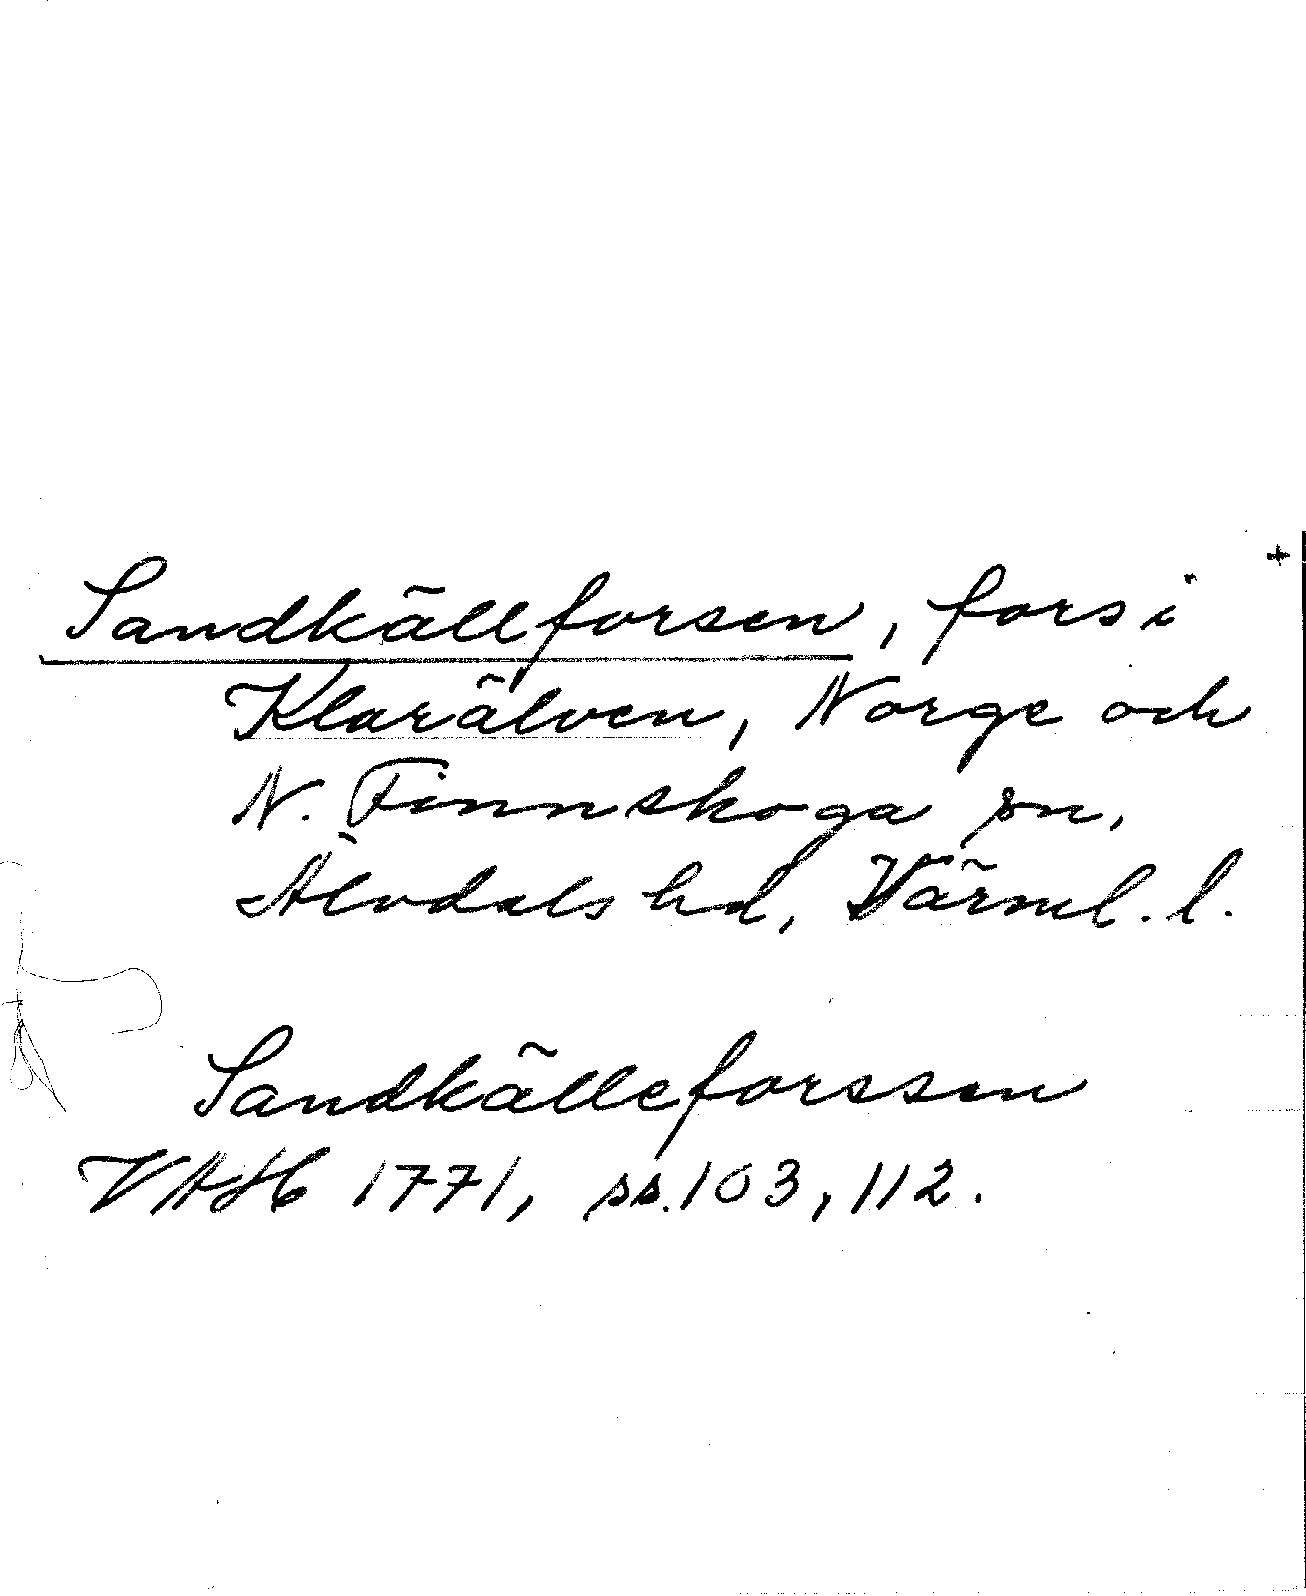 +
Sandkällforsen, fors i
Klarälven, Norge och
N. Finnskoga sn,
Älvdals hd, Värml. l.
Sandkälleforssen
VAH 1771, ss. 103, 112.